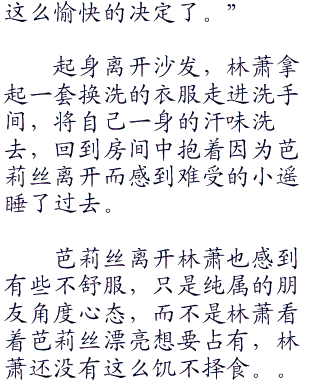 这么愉快的决定了。”
起身离开沙发，林萧拿
起一套换洗的衣服走进洗手
间，将自己一身的汗味洗
去，回到房间中抱着因为芭
莉丝离开而感到难受的小遥
睡了过去。
芭莉丝离开林萧也感到
有些不舒服，只是纯属的朋
友角度心态，而不是林萧看
着芭莉丝漂亮想要占有，林
萧还没有这么饥不择食。。